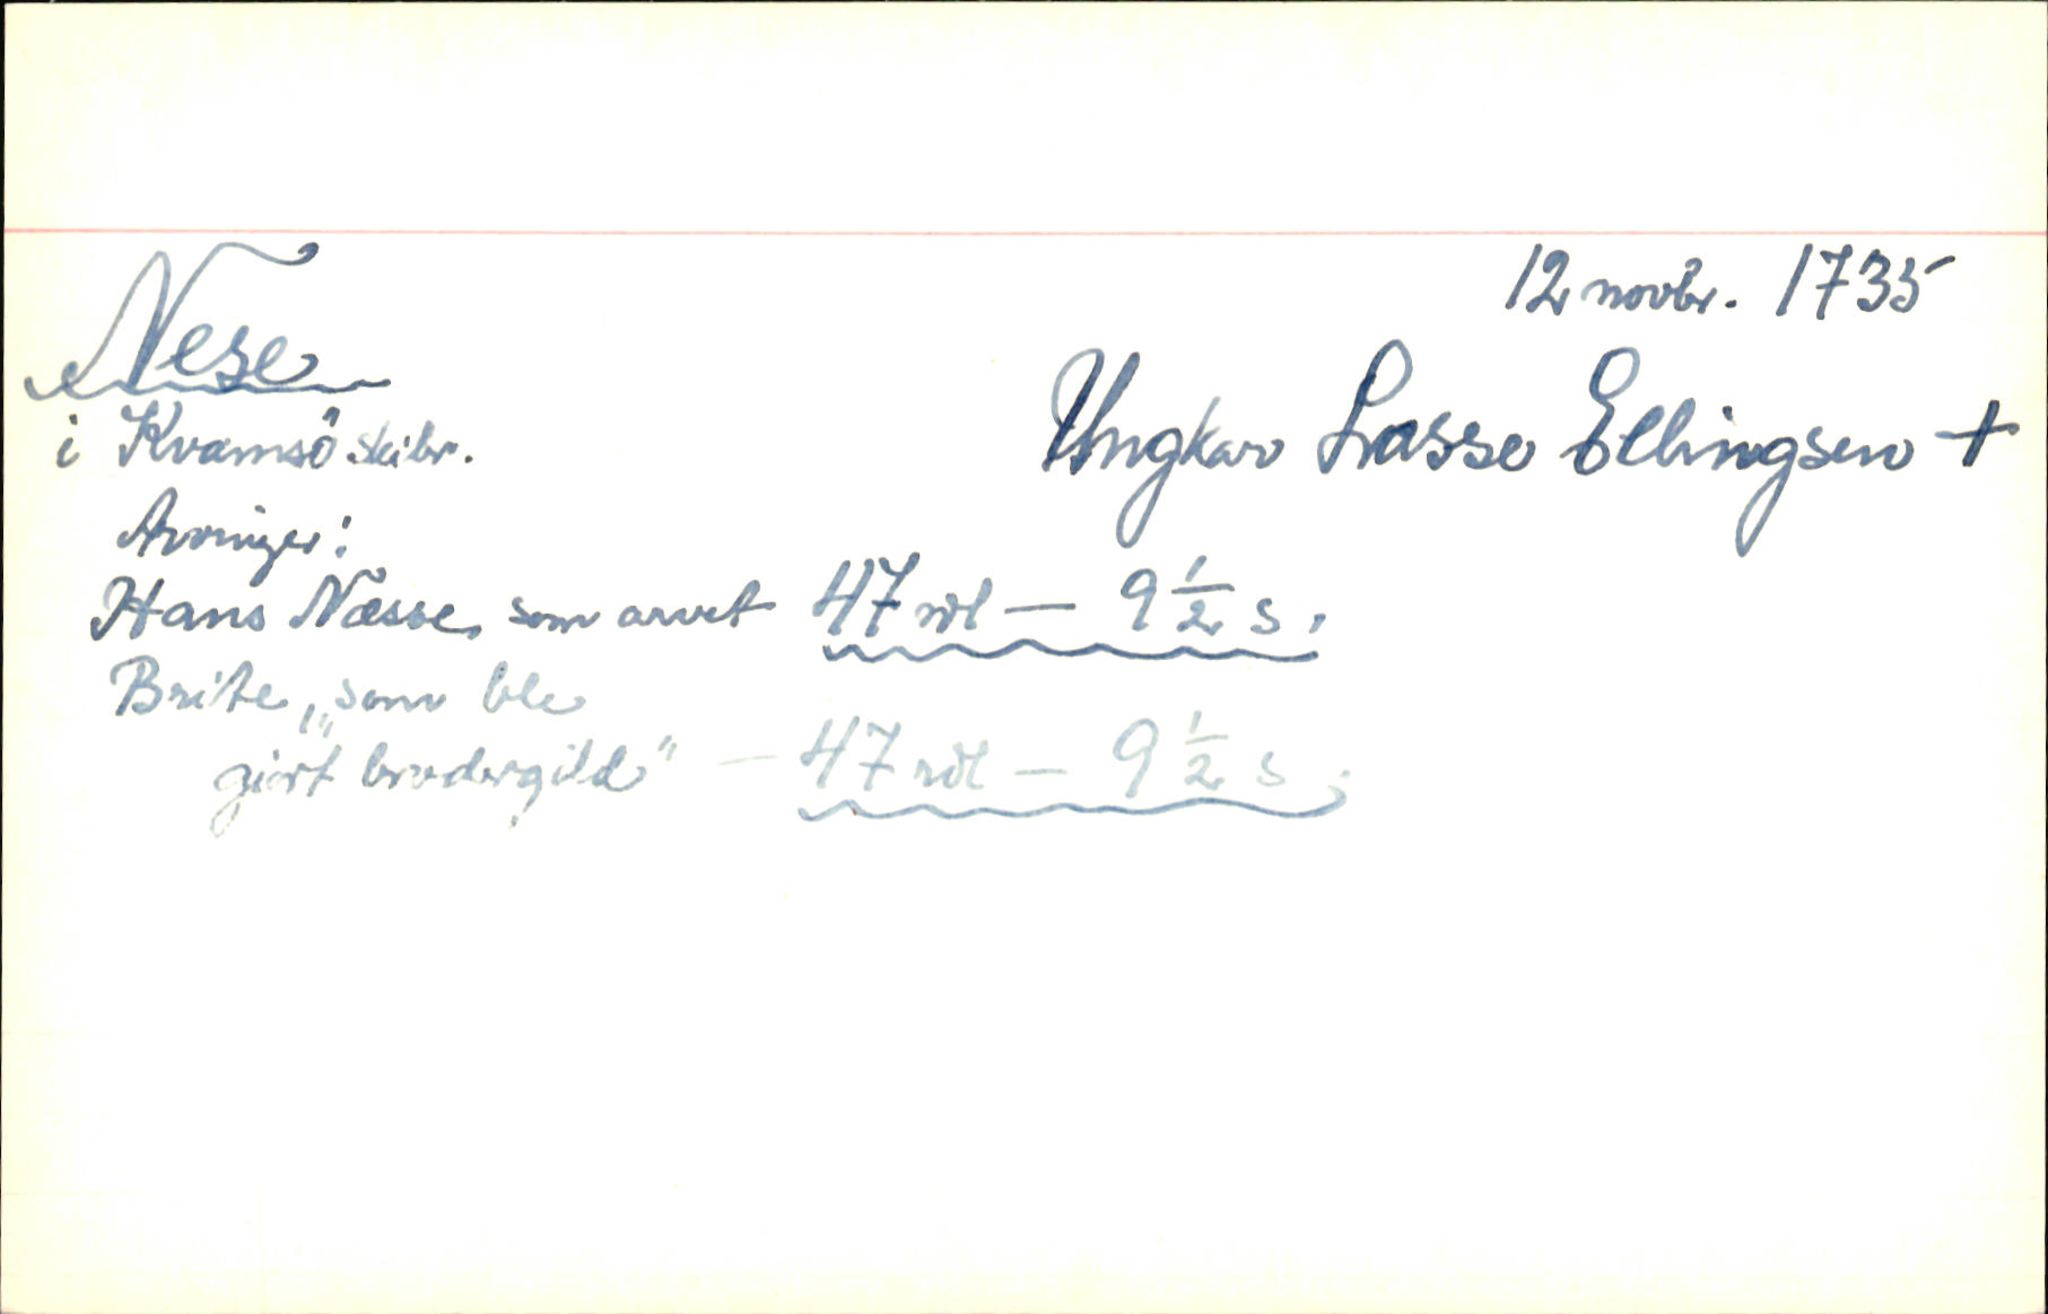 12 novbr. 1735
Nese
i Kvamsö skibr.
Ungkar Lasse Ellingsen +
Arvinger:
Hans Næsse, som arvet 47 rdl — 9 1/2 s.
Brite, „som ble
giort brodergild" — 47 rdl — 9 1/2 s.